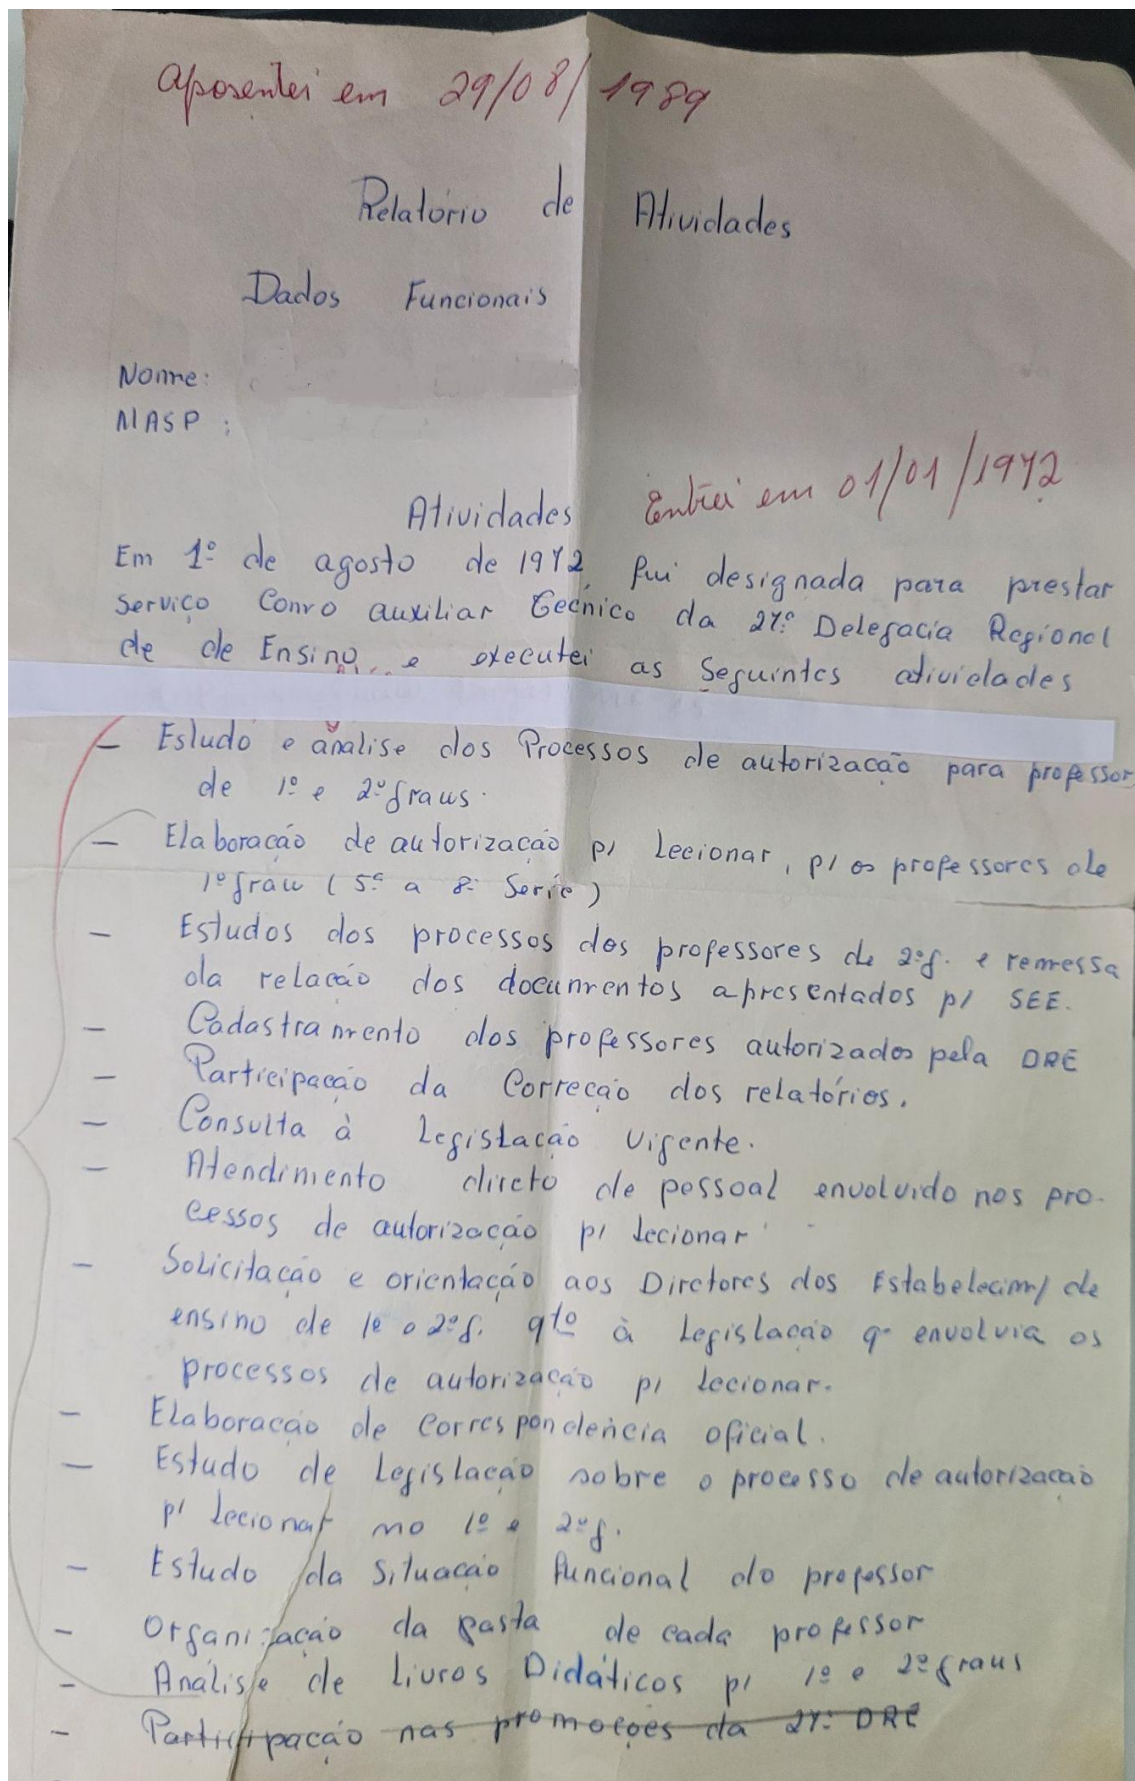 Aposentei em 29/08/1989
Relatório de Atividades
Dados Funcionais
Nome:
MASP:
Entrei em 01/01/1972
Atividades
Em 1º de agosto de 1972, fui designada para prestar
serviço como auxiliar Técnico da 27ª Delegacia Regional
de de Ensino e executei as seguintes atividades
- Estudo e análise dos Processos de autorização para professor
de 1º e 2º graus.
- Elaboração de autorização p/ lecionar, p/ os professores de
1º grau (5ª a 8ª Serie)
- Estudos dos processos dos professores de 2º g. e remessa
da relação dos documentos apresentados p/ SEE.
- Cadastramento dos professores autorizados pela DRE
- Participação da Correção dos relatórios.
- Consulta à Legislação Vigente.
- Atendimento direto de pessoal envolvido nos pro-
cessos de autorização p/ lecionar
- Solicitação e orientação aos Diretores dos Estabelecim/ de
ensino de 1º e 2º g. qto à Legislação q envolvia os
processos de autorização p/ lecionar.
- Elaboração de Correspondência oficial.
- Estudo de Legislação sobre o processo de autorização
p/ lecionar no 1º e 2º g.
- Estudo da Situação Funcional do professor
- Organização da pasta de cada professor
- Análise de Livros Didáticos p/ 1º e 2º graus
- Participação nas promoções da 27ª DRE